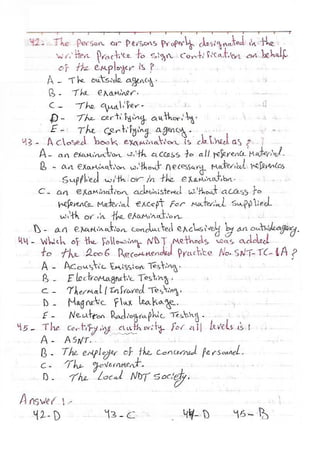 42. The Person or Persons Properly designated in the
written Practice to sign Certification on behalf
of the employer is ?
A - The outside agency.
B - The examiner.
C - The qualifer.
D - The certifying authority.
E - The Certifying agency.
43 - A closed book examination is defined as ?
A - an examination with access to all reference Material.
B - an examination without necessary Material references
Supplied with or in the examination.
C - an examination administered without access to
reference Material except for Material Supplied
with or in the examination.
D - an examination conducted exclusively by an outside agency.
44 - Which of the following NDT Methods was added
to the 2006 Recommended Practice No. SNT-TC-1A ?
A - Acoustic Emission Testing.
B - Electromagnetic Testing.
C - Thermal / Infrared Testing.
D - Magnetic Flux Leakage.
E - Neutron Radiographic Testing.
45 - The certifying authority for all levels is :
A - ASNT.
B - The employer of the Concerned Personnel.
C - The government.
D - The Local NDT Society.
Answer :-
42-D 43-C 44-D 45-B